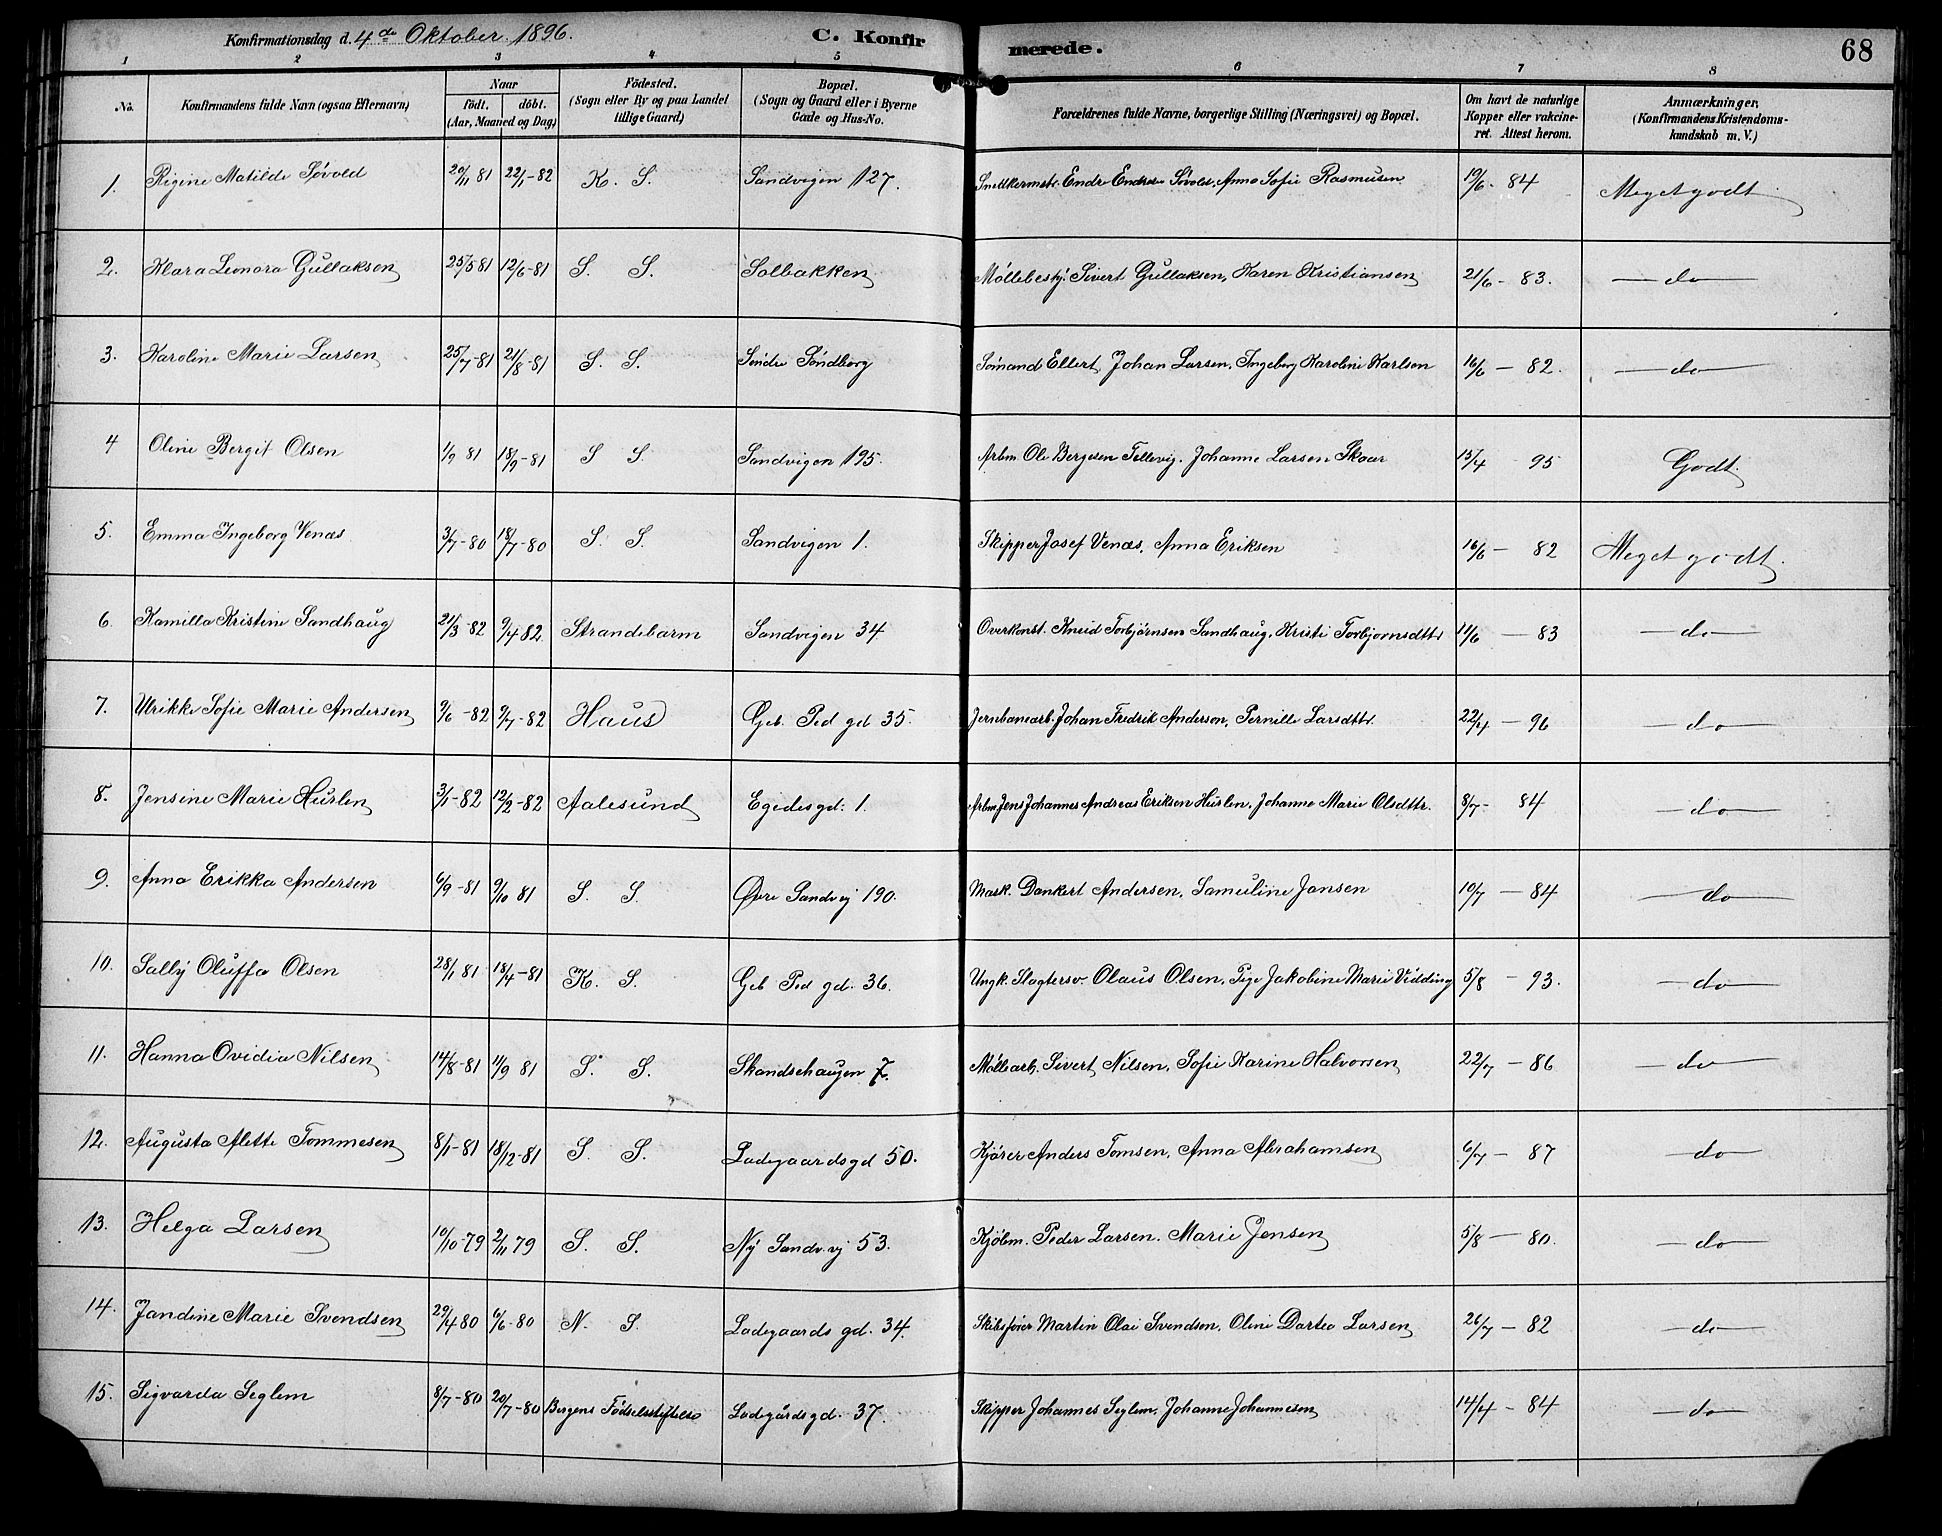 Konfirmationsdag d. 4de Oktober 1896. C. Konfirmerede. 68
1 2 3 4 5 6 7 8
No. Konfirmandens fulde Navn (ogsaa Efternavn) Naar født. døbt. (Aar, Maaned og Dag) Fødested. (Sogn eller By og paa Landet tillige Gaard) Bopæl. (Sogn og Gaard eller i Byerne Gade og Hus-No. Forældrenes fulde Navne, borgerlige Stilling (Næringsvei) og Bopæl. Om havt de naturlige Kopper eller vakcineret. Attest herom. Anmærkninger. (Konfirmandens Kristendomskundskab m. V.)
1. Rigine Matilde Søvold 20/11 81 22/1-82 K. S. Sandvigen 127. Snedkermstr. Endre Endresen Søvold, Anna Sofie Rasmusen 19/6-84 Meget godt
2. Klara Leonora Gullaksen 25/5 81 12/6-81 S. S. Solbakken Møllebesty. Sivert Gullaksen, Karen Kristiansen 21/6-83. do
3. Karoline Marie Larsen 25/7-81 21/8-81 S. S. Søndre Søndborg Sømand Ellert Johan Larsen, Ingeborg Karoline Karlsen 16/6-82. do
4 Oline Bergit Olsen 1/9 81 18/9-81 S S. Sandvigen 195. Arbm. Ole Bergesen Tellevig. Johanne Larsen Skaar 15/4 95 Godt.
5. Emma Ingeborg Venæs 3/7-80 18/7-80 S. S. Sandvigen 1. Skipper Josef Venæs, Anna Eriksen 16/6-82 Meget godt.
6. Kamilla Kristine Sandhaug 21/3-82 9/4-82 Strandebarm Sandvigen 34 Overkonst. Kneid Torbjørnsen Sandhaug, Kristi Torbjørnsdttr 11/6-83 do
7. Ulrikke Sofie Marie Andersen 9/6-82 9/7-82 Haus Geb. Ped gd 35. Jernbanearb. Johan Fredrik Anderson, Pernille Larsdttr. 22/4-96 do
8. Jensine Marie Hurlen 3/1-82 12/2-82 Aalesund Egedesgd. 1. Arbm. Jens Johannes Andreas Eriksen Hurlen, Johanne Marie Olsdttr. 8/7-84 do
9. Anna Erikka Andersen 6/9-81 9/10 81 S. S. Øvre Sandvej 190. Mask. Dankert Andersen, Samuline Jansen 10/7-84 do
10. Sally Oluffa Olsen 28/1 81 18/4-81 K. S. Geb Ped gd. 36. Ungk. Slagtersv. Olaus Olsen, Pige Jakobine Marie Vidding 5/8-93. do
11. Hanna Ovidia Nilsen 14/8-81 11/9 81 S. S. Skandsehaugen 7. Møllearb. Sivert Nilsen, Sofie Karine Halvorsen 22/7-86 do
12. Augusta Alette Tommesen 8/1-81 18/12-81 S. S. Ladegaardsgd 50. Kjører Anders Tomsen, Anna Abrahamsen 6/7-87 do
13. Helga Larsen 10/10-79 2/11 79 S. S. Ny Sandvej 53. Kjølm. Peder Larsen. Marie Jensen 5/8-80. do
14. Jandine Marie Svendsen 29/4 80 6/6-80 N. S. Ladegaards gd. 34. Skibsfører Martin Olai Svendson, Oline Dortea Larsen 26/7-82 do
15. Sigvarda Seglem 8/7-80 20/7-80 Bergens Fødselsstiftelse Ladegårdsgd. 37. Skipper Johannes Seglem, Johanne Johannesen 14/4-84 do